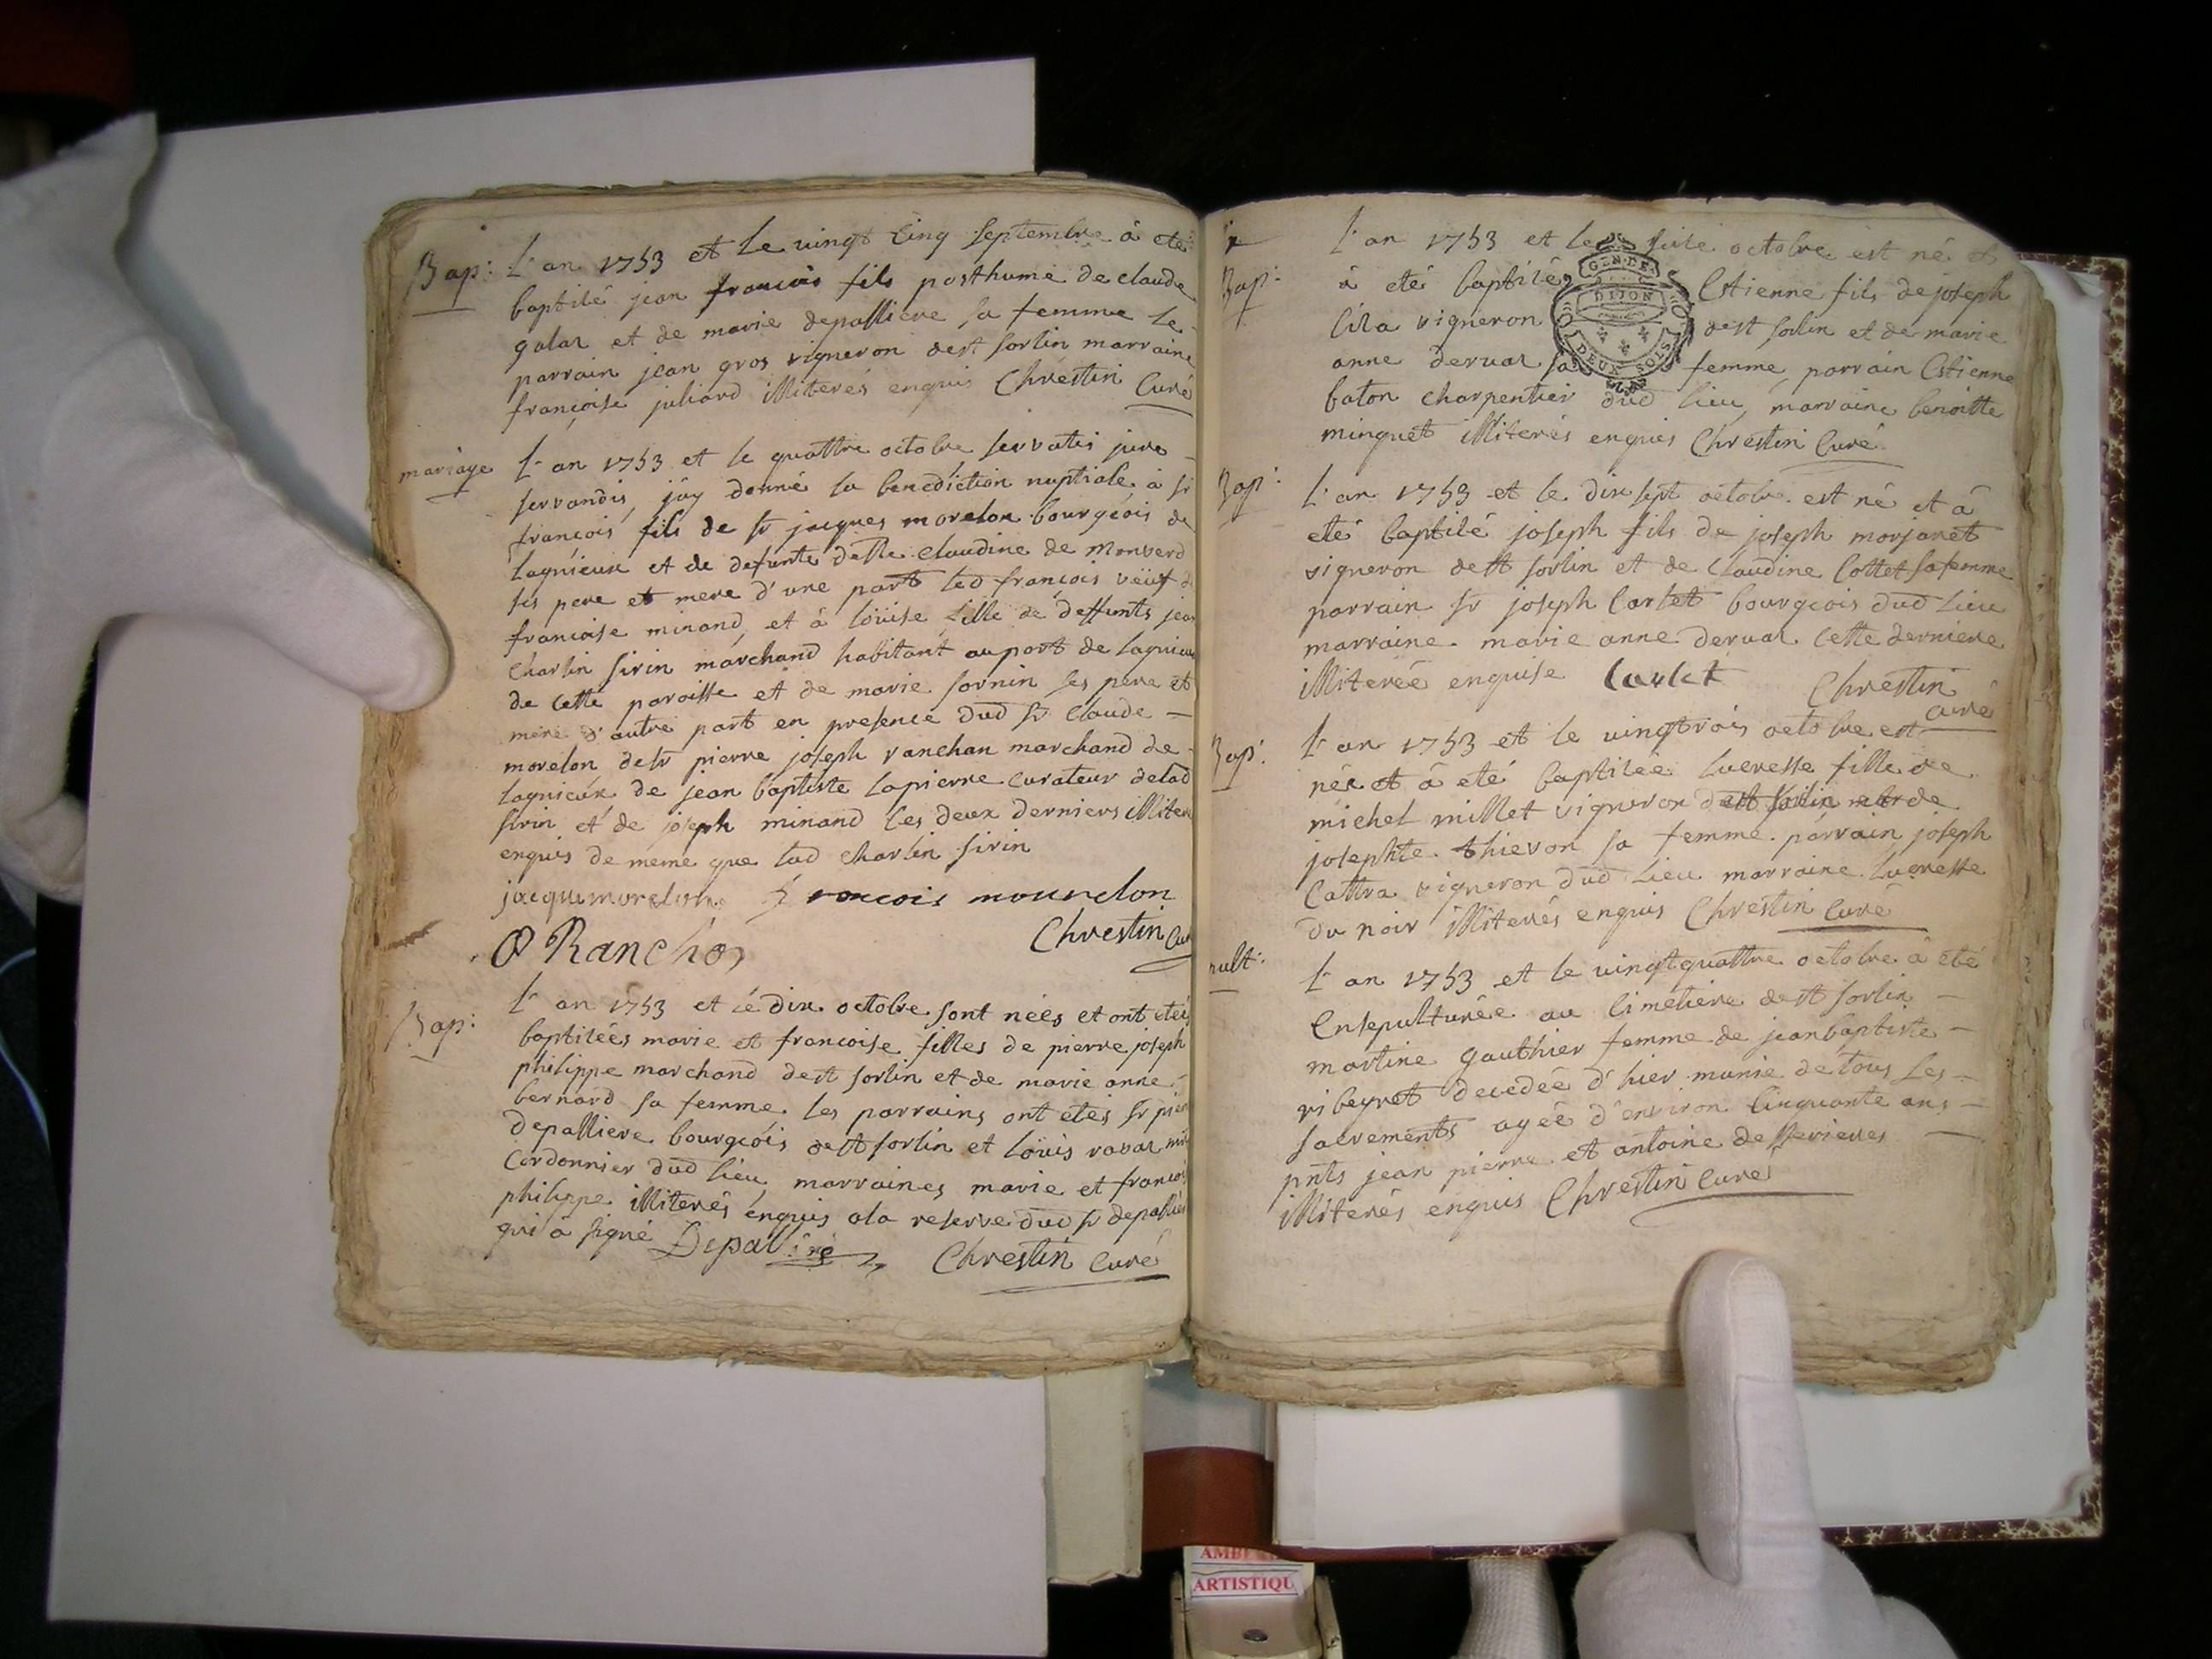 Bap: L'an 1753 et le vingt cinq septembre à eté
baptisé jean francois fils posthume de claude
galar et de marie depalliere sa femme le
parrain jean gros vigneron de st sorlin marraine
françoise juliard illiterés enquis Chrestin Curé
mariage L'an 1753 et le quattre octobre servatis jure
servandis, jäy donné la benediction nuptiale à sr
francois fils de sr jacques morelon bourgeois de
lagnieux et de defunte delle claudine de Monverd
ses pere et mere d'une part led francois veüf d
francoise minand, et à loüise fille de deffunts jean
Charlin sirin marchand habitant au port de lagnieu
de cette paroisse et de marie sornin ses pere et
mere d'autre part en presence dud sr claude
morelon de sr pierre joseph ranchan marchand de
lagnieux de jean baptiste lapierre curateur delad
sirin et de joseph minand les deux derniers illiter
enquis de meme que lad charlin sirin
jacque morelon francois mourelon
Chrestin Cur
Ranchon
Bap: L'an 1753 et le dix octobre sont nées et ont etés
baptisées marie et francoise filles de pierre joseph
philippe marchand de st sorlin et de marie anne
bernard sa femme les parrains ont etés sr pier
depalliere bourgeois de st sorlin et loüis ravar
Cordonnier dud lieu, marraines marie et francoi
philippe illiterés enquis a la reserve dud sr depallie
qui à signé Depallière Chrestin Curé
Bap: L'an 1753 et le seise octobre est né et
à eté baptisé Estienne fils de joseph
vigneron de st sorlin et de marie
anne dervar sa femme, parrain Estienne
baton charpentier dud lieu, marraine benoitte
minguet illiterés enquis Chrestin Curé
GEN. DE
DIJON
DEUX SOLS
Bap: L'an 1753 et le dix sept octobre est né et à
eté baptisé joseph fils de joseph morjaret
vigneron de st sorlin et de claudine Cottet sa femme
parrain sr joseph Carlet bourgeois dud lieu
marraine marie anne dervar cette derniere
illiterée enquise Carlet Chrestin
Curé
Bap: L'an 1753 et le vingtrois octobre est
née et à eté baptisée lucresse fille de
michel millet vigneron de st sorlin et de
josephte thievon sa femme parrain joseph
Cattra vigneron dud lieu marraine lucresse
du noir illiterés enquis Chrestin Curé
pult: L'an 1753 et le vingtquattre octobre à eté
Ensepulturée au Cimetiere de st sorlin
martine gauthier femme de jean baptiste
ribeyret decedée d'hier munie de tous les
sacrements agée d'environ Cinquante ans
pnts jean pierre et antoine de sserieres
illiterés enquis Chrestin Curé
ARTISTIQU